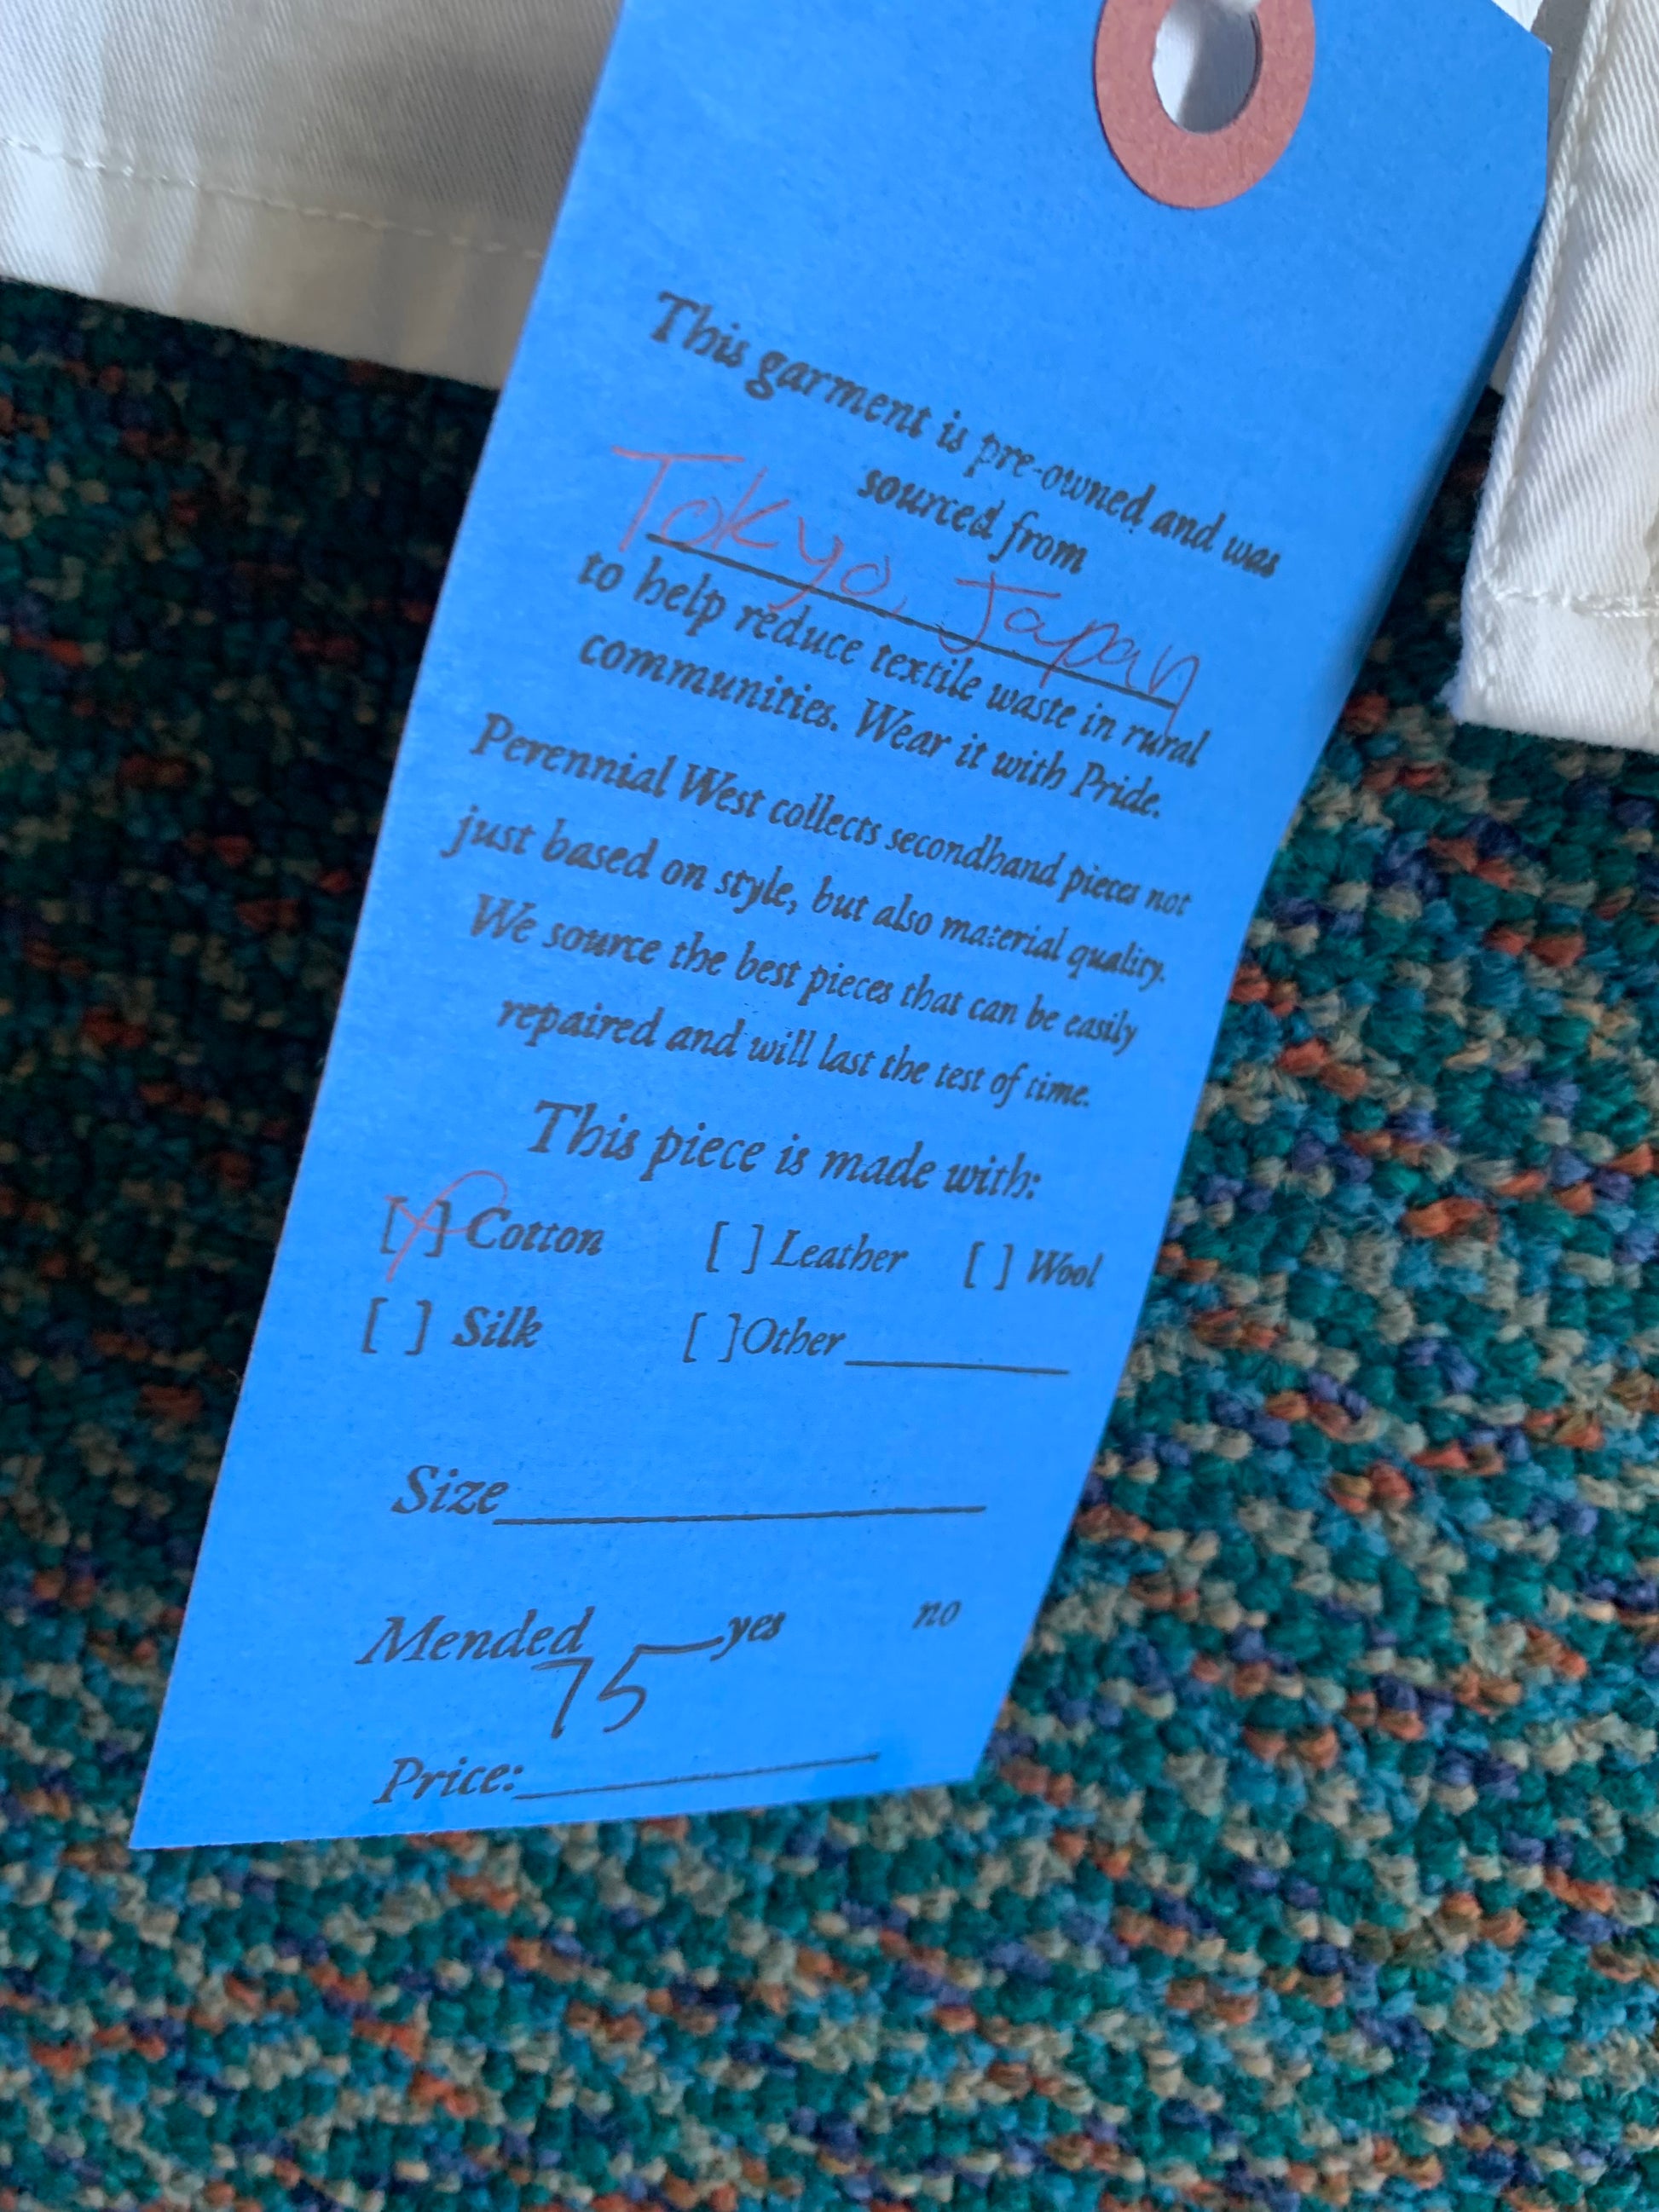 This garment is pre-owned and was
sourced from
Tokyo, Japan
to help reduce textile waste in rural
communities. Wear it with Pride.
Perennial West collects secondhand pieces not
just based on style, but also material quality.
We source the best pieces that can be easily
repaired and will last the test of time.
This piece is made with:
[x] Cotton [ ] Leather [ ] Wool
[ ] Silk [ ]Other
Size
Mended yes no
75
Price: